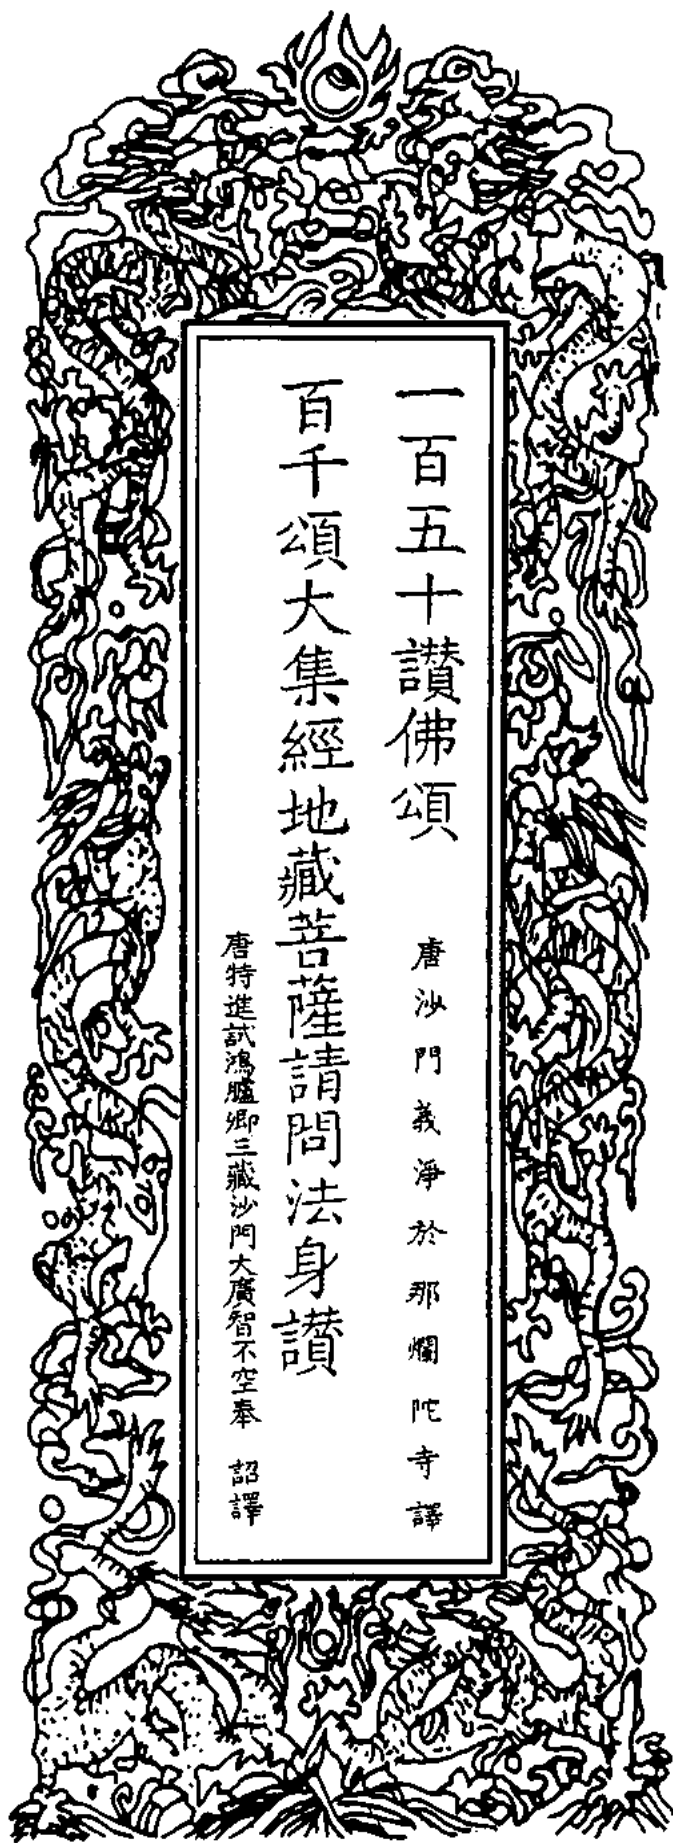 一百五十讚佛頌
唐沙門義淨於那爛陀寺譯
百千頌大集經地藏菩薩請問法身讃
唐特進試鴻臚卿三藏沙門大廣智不空奉 詔譯